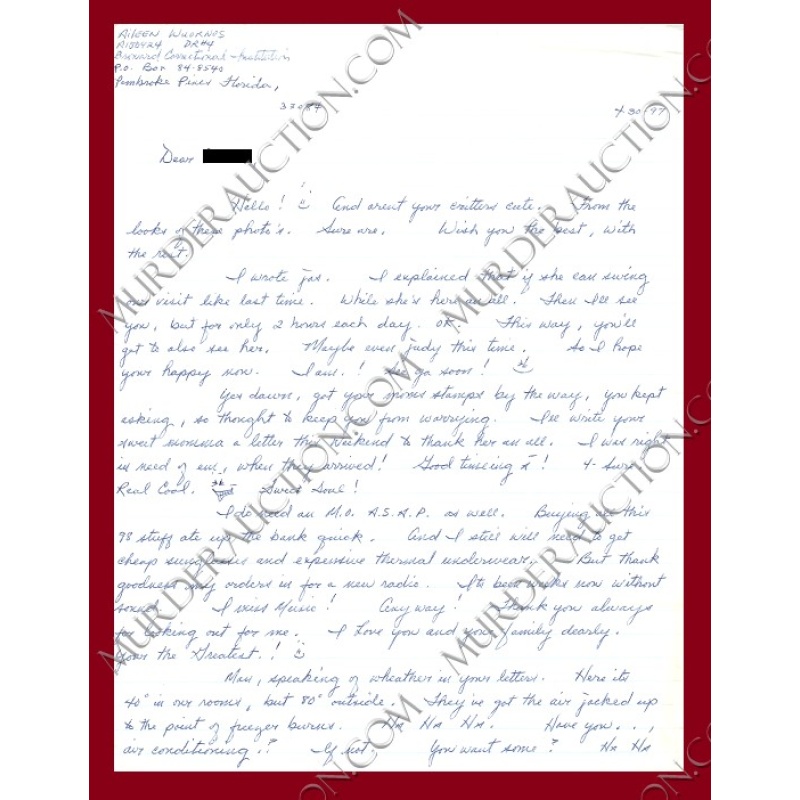 AILEEN WUORNOS
A150924 DR#4
Broward Correctional Institution
P.O. Box 84-8540
Pembroke Pines Florida,
33084
4-30-97
Dear
Hello! And arent your critters cute. From the
looks of these photo's. Sure are. Wish you the best, with
the rest.
I wrote jas. I explained that if she can swing
one visit like last time. While she's here an all. Then I'll see
you, but for only 2 hours each day. OK. This way, you'll
get to also see her. Maybe even judy this time. So I hope
your happy now. I am.! See ya soon!
Yes dawn, got your moms stamps by the way, you kept
asking, so thought to keep you from worrying. I'll write your
sweet momma a letter this weekend to thank her an all. I was right
in need of em, when they arrived! Good timeing! Sure
Real Cool. Sweet Soul!
I do need an M.O. A.S.A.P. as well. Buying all this
98 stuff ate up the bank quick. And I still will need to get
cheap sunglasses and expensive thermal underwear. But thank
goodness my orders in for a new radio. Its been weeks now without
sound. I miss Music! Any way! Thank you always
for looking out for me. I Love you and your family dearly.
Your the Greatest.!
Man, speaking of wheather in your letters. Here its
40° in our rooms, but 80° outside. They've got the air jacked up
to the point of freezer burns. HA HA HA. Have you...,
air conditioning.? If not. You want some? HA HA
MURDERAUCTION.COM
MURDERAUCTION.COM
MURDERAUCTION.COM
MURDERAUCTION.COM